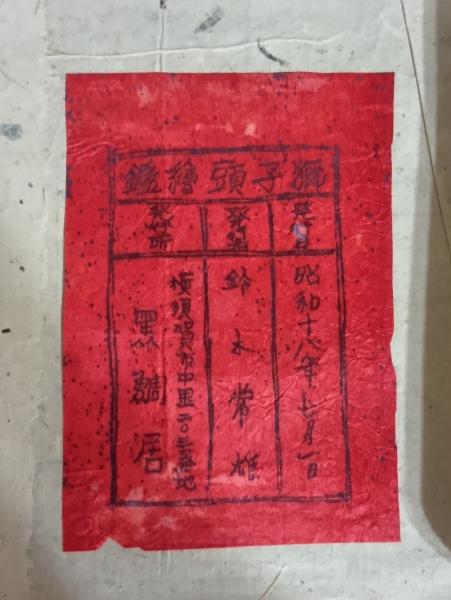 獅子頭繪鑑
發行日
昭和十八年七月一日
發編
鈴木常雄
發行所
横須賀市中里二〇三番地
黒鯛居